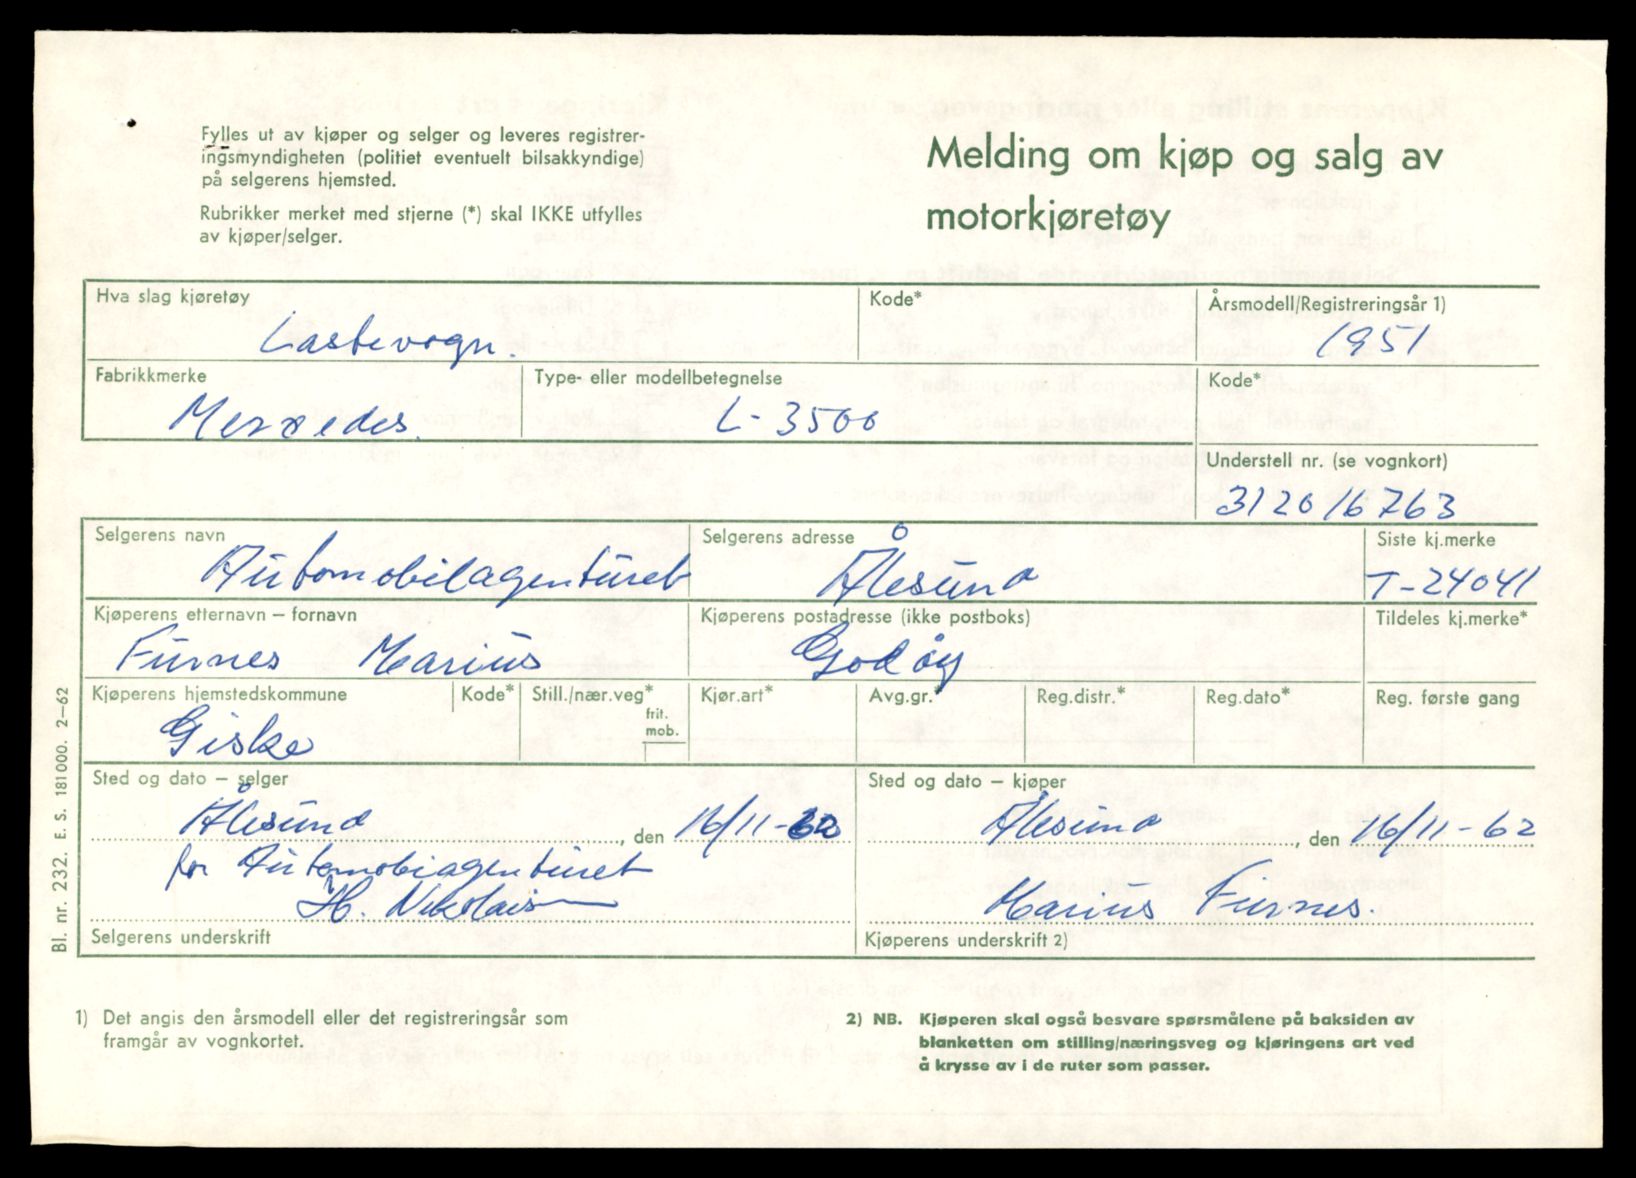 Fylles ut av kjøper og selger og leveres registrer-
ingsmyndigheten (politiet eventuelt bilsakkyndige)
på selgerens hjemsted.
Rubrikker merket med stjerne (*) skal IKKE utfylles
av kjøper/selger.
Melding om kjøp og salg av
motorkjøretøy
Hva slag kjøretøy
Kode*
Årsmodell/Registreringsår 1)
Lastevogn.
1951
Fabrikkmerke
Type- eller modellbetegnelse
Kode*
Mercedes.
L-3500
Understell nr. (se vognkort)
312016763
Selgerens navn
Selgerens adresse
Siste kj.merke
Automobilagenturet
Ålesund
T-24041
Kjøperens etternavn – fornavn
Kjøperens postadresse (ikke postboks)
Tildeles kj.merke*
Furnes Marius
Godøy
Kjøperens hjemstedskommune
Kode*
Still./nær.veg*
frit.
mob.
Kjør.art*
Avg.gr.*
Reg.distr.*
Reg.dato*
Reg. første gang
Giske
Sted og dato – selger
Sted og dato – kjøper
Ålesund, den 16/11-62
Ålesund, den 16/11-62
for Automobiagenturet
H. Nikolaisen
Marius Furnes.
Selgerens underskrift
Kjøperens underskrift 2)
Bl. nr. 232. E. S. 181000. 2–62
1) Det angis den årsmodell eller det registreringsår som
framgår av vognkortet.
2) NB. Kjøperen skal også besvare spørsmålene på baksiden av
blanketten om stilling/næringsveg og kjøringens art ved
å krysse av i de ruter som passer.